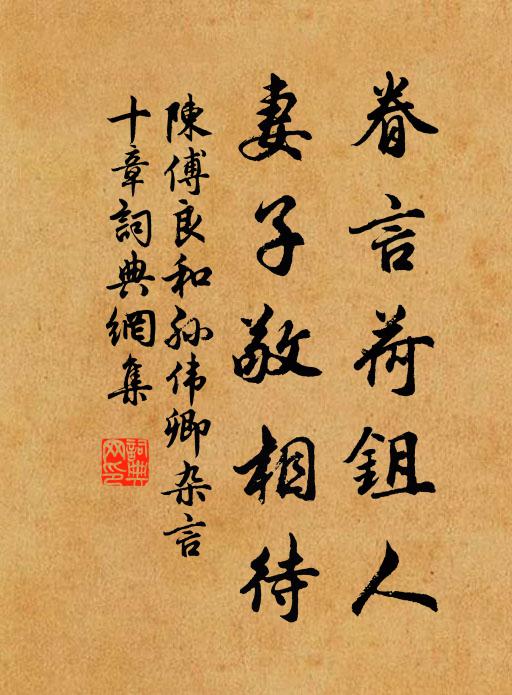 眷言荷鉏人
妻子敬相待
陳傅良和孙伟卿杂言
十章詞典網集
詞典網印